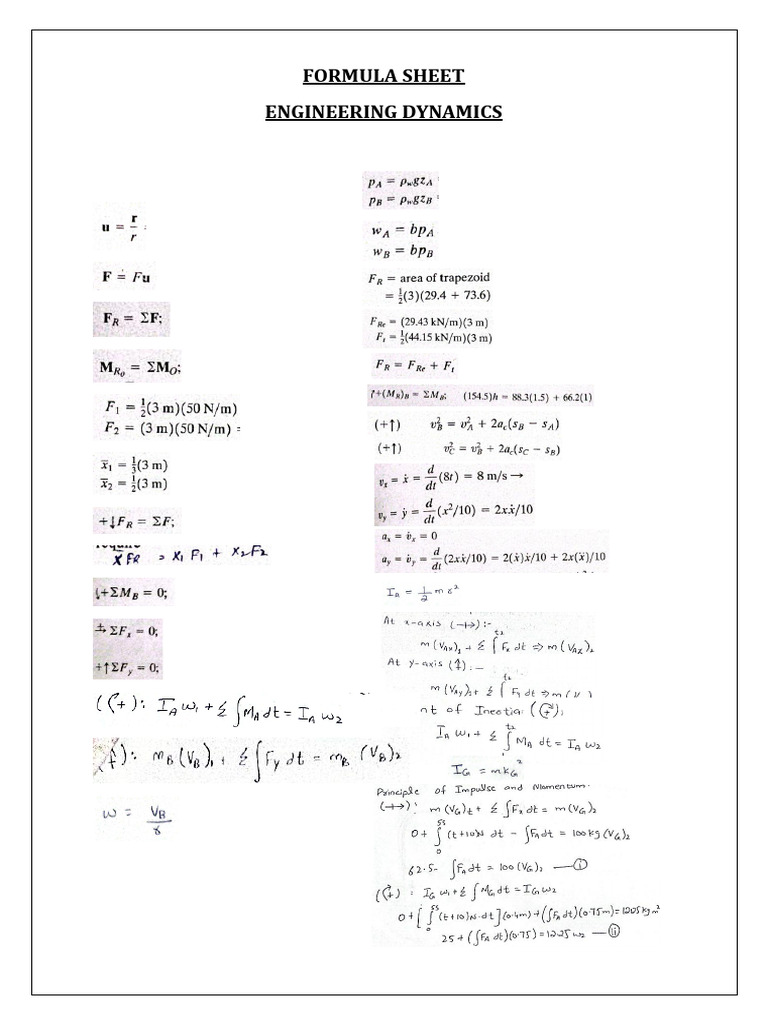 FORMULA SHEET
ENGINEERING DYNAMICS
u = r/r
F = Fu
F_R = ΣF;
M_Ro = ΣM_O;
F₁ = ½(3 m)(50 N/m)
F₂ = (3 m)(50 N/m) =
x̄₁ = ⅓(3 m)
x̄₂ = ½(3 m)
+↓F_R = ΣF;
x̄ F_R = x₁F₁ + x₂F₂
↓+ΣM_B = 0;
→+ ΣF_x = 0;
+↑ΣF_y = 0;
(↶+): I_A ω₁ + Σ∫M_A dt = I_A ω₂
): m_B (V_B)₁ + Σ∫F_y dt = m_B (V_B)₂
ω = V_B/r
p_A = ρ_w g z_A
p_B = ρ_w g z_B
w_A = bp_A
w_B = bp_B
F_R = area of trapezoid
= ½(3)(29.4 + 73.6)
F_Re = (29.43 kN/m)(3 m)
F_t = ½(44.15 kN/m)(3 m)
F_R = F_Re + F_t
↑+(M_R)_B = ΣM_B; (154.5)h = 88.3(1.5) + 66.2(1)
(+↑) v²_B = v²_A + 2a_c(s_B − s_A)
(+↑) v²_C = v²_B + 2a_c(s_C − s_B)
v_x = ẋ = d/dt (8t) = 8 m/s →
v_y = ẏ = d/dt (x²/10) = 2xẋ/10
a_x = v̇_x = 0
a_y = v̇_y = d/dt (2xẋ/10) = 2(ẋ)ẋ/10 + 2x(ẍ)/10
I_A = 1/2 m r²
At x-axis (→+) :-
m(V_Ax)₁ + Σ∫F_x dt ⇒ m(V_Ax)₂
At y-axis (↑) :-
m(V_Ay)₁ + Σ∫F_y dt ⇒ m
nt of Inertia: (↶+):
I_A ω₁ + Σ∫M_A dt = I_A ω₂
I_G = mk_G²
Principle of Impulse and Momentum.
(→+): m(V_G)₁ + Σ∫F_x dt = m(V_G)₂
0 + ∫(t+10)N dt − ∫F_A dt = 100kg (V_G)₂
62.5 − ∫F_A dt = 100(V_G)₂ — (i)
(↶+): I_G ω₁ + Σ∫M_G dt = I_G ω₂
0 + [∫(t+10)N·dt](0.4m) + (∫F_A dt)(0.75m) = 1225 kg m²
25 + (∫F_A dt)(0.75) = 12.25 ω₂ — (ii)